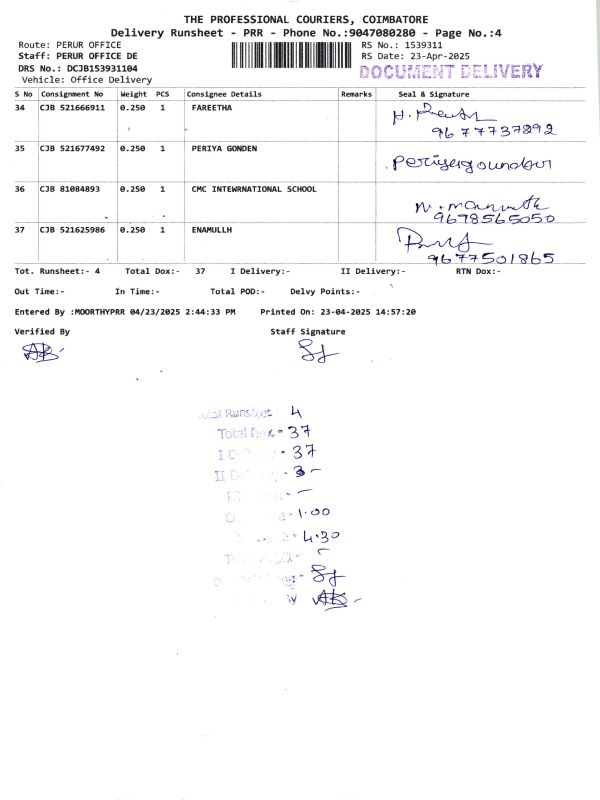 THE PROFESSIONAL COURIERS, COIMBATORE
Delivery Runsheet - PRR - Phone No.:9047080280 - Page No.:4
Route: PERUR OFFICE
RS No.: 1539311
Staff: PERUR OFFICE DE
RS Date: 23-Apr-2025
DRS No.: DCJB153931104
DOCUMENT DELIVERY
Vehicle: Office Delivery
S No Consignment No Weight PCS Consignee Details Remarks Seal & Signature
34 CJB 521666911 0.250 1 FAREETHA
9677737892
35 CJB 521677492 0.250 1 PERIYA GONDEN
Periyagoundar
36 CJB 81084893 0.250 1 CMC INTEWRNATIONAL SCHOOL
9678565050
37 CJB 521625986 0.250 1 ENAMULLH
9677501865
Tot. Runsheet:- 4 Total Dox:- 37 I Delivery:- II Delivery:- RTN Dox:-
Out Time:- In Time:- Total POD:- Delvy Points:-
Entered By :MOORTHYPRR 04/23/2025 2:44:33 PM Printed On: 23-04-2025 14:57:20
Verified By Staff Signature
Runsheet 4
Total Dox - 37
I 37
II
1.00
4.30